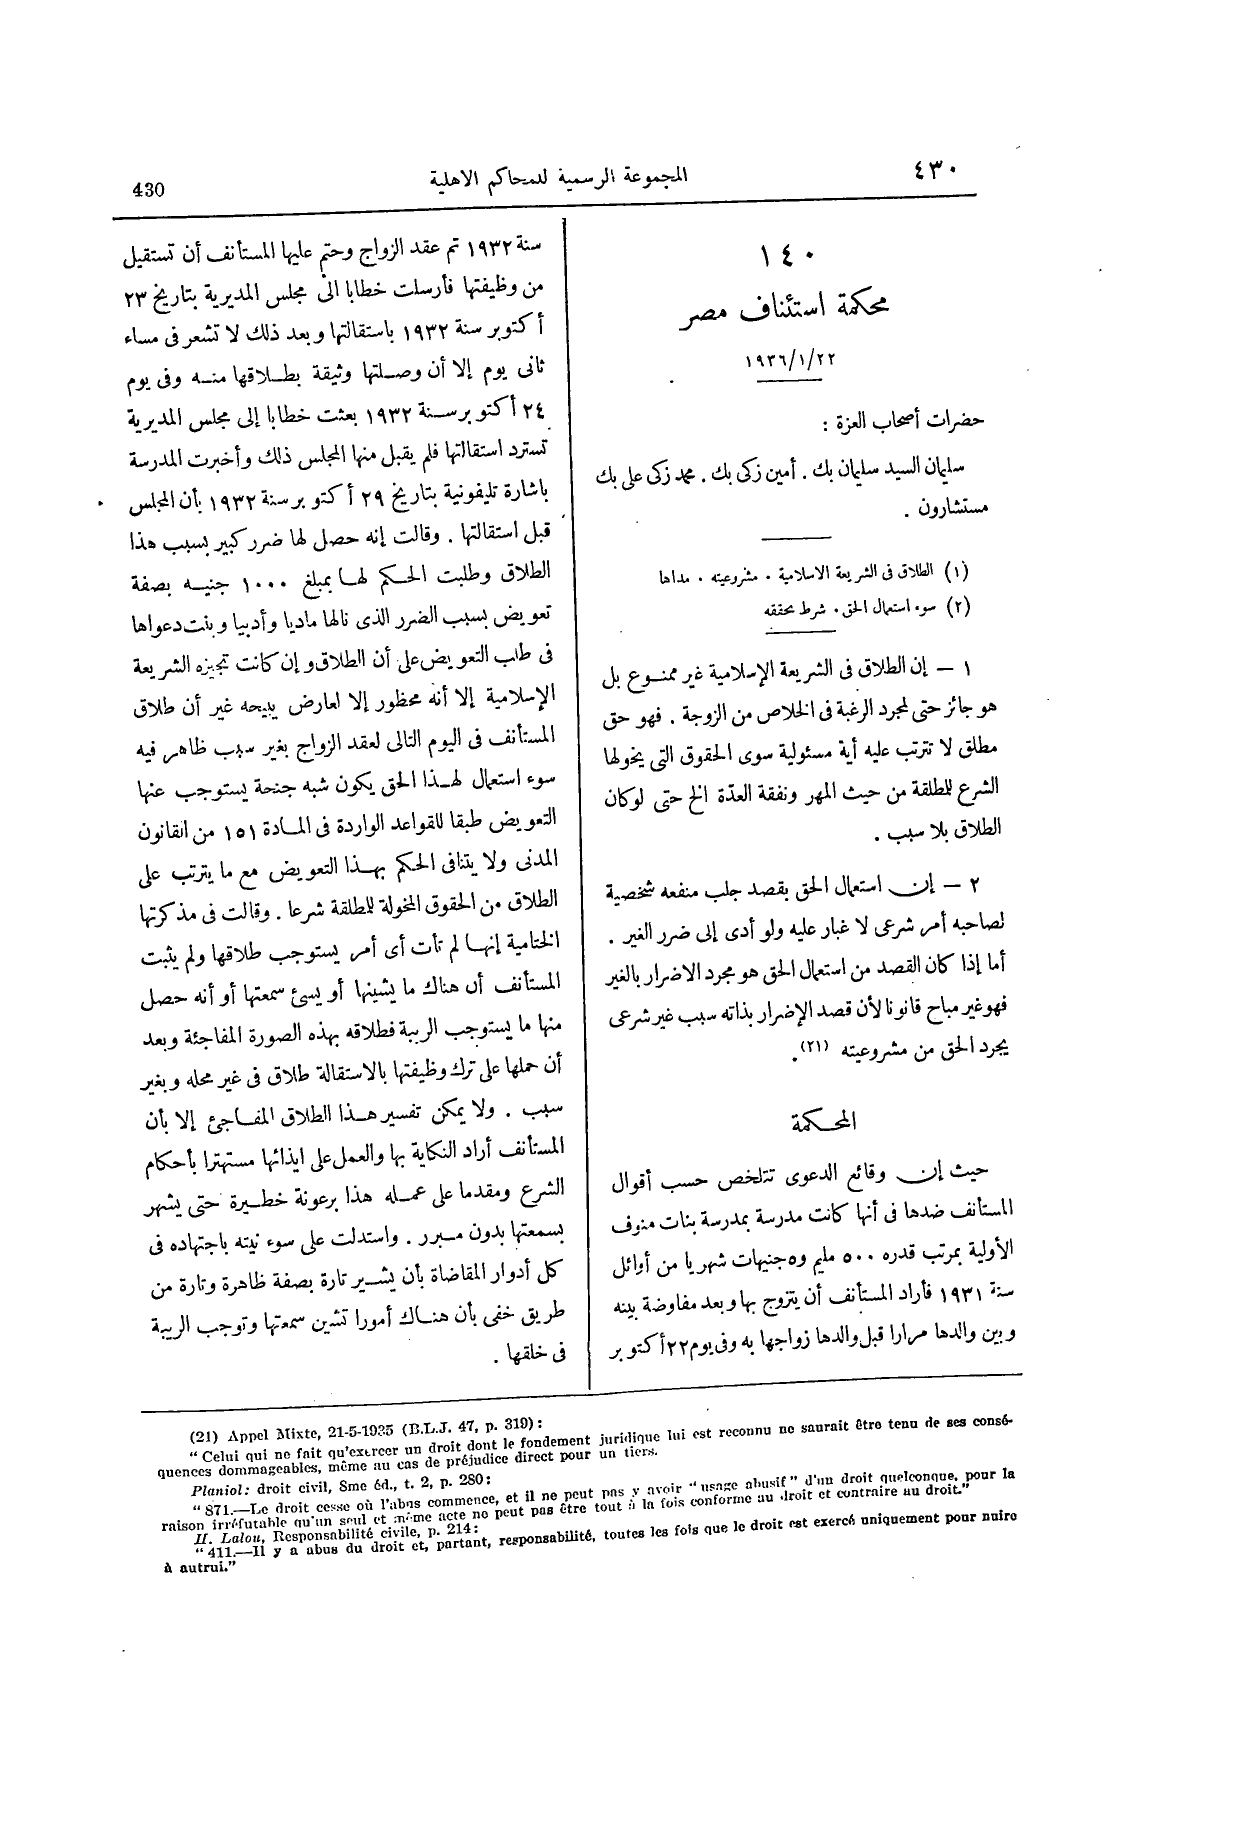 ٤٣٠
المجموعة الرسمية للمحاكم الاهلية
430
١٤٠
محكمة استئناف مصر
١٩٣٦/١/٢٢
حضرات أصحاب العزة :
سليمان السيد سليمان بك . أمين زكى بك . محمد زكى على بك
مستشارون .
(١) الطلاق فى الشريعة الاسلامية . مشروعيته . مداها
(٢) سوء استعمال الحق . شرط تحققه
١ — إن الطلاق فى الشريعة الإسلامية غير ممنوع بل
هو جائز حتى لمجرد الرغبة فى الخلاص من الزوجة . فهو حق
مطلق لا تترتب عليه أية مسئولية سوى الحقوق التى يخولها
الشرع للطلقة من حيث المهر ونفقة العدّة الخ حتى لو كان
الطلاق بلا سبب .
٢ — إن استعمال الحق بقصد جلب منفعه شخصية
لصاحبه أمر شرعى لا غبار عليه ولو أدى إلى ضرر الغير .
أما إذا كان القصد من استعمال الحق هو مجرد الاضرار بالغير
فهو غير مباح قانونا لأن قصد الإضرار بذاته سبب غير شرعى
يجرد الحق من مشروعيته (٢١).
المحكمة
حيث إن وقائع الدعوى تتلخص حسب أقوال
المستأنف ضدها فى أنها كانت مدرسة بمدرسة بنات منوف
الأولية بمرتب قدره ٥٠٠ مليم و٥ جنيهات شهريا من أوائل
سنة ١٩٣١ فأراد المستأنف أن يتزوج بها وبعد مفاوضة بينه
وبين والدها مرارا قبل والدها زواجها به وفى يوم ٢٢ أكتوبر
سنة ١٩٣٢ تم عقد الزواج وحتم عليها المستأنف أن تستقيل
من وظيفتها فأرسلت خطابا الى مجلس المديرية بتاريخ ٢٣
أكتوبر سنة ١٩٣٢ باستقالتها وبعد ذلك لا تشعر فى مساء
ثانى يوم إلا أن وصلتها وثيقة بطلاقها منه وفى يوم
٢٤ أكتوبر سنة ١٩٣٢ بعثت خطابا إلى مجلس المديرية
تسترد استقالتها فلم يقبل منها المجلس ذلك وأخبرت المدرسة
باشارة تليفونية بتاريخ ٢٩ أكتوبر سنة ١٩٣٢ بأن المجلس
قبل استقالتها . وقالت إنه حصل لها ضرر كبير بسبب هذا
الطلاق وطلبت الحكم لها بمبلغ ١٠٠٠ جنيه بصفة
تعويض بسبب الضرر الذى نالها ماديا وأدبيا وبنت دعواها
فى طلب التعويض على أن الطلاق وإن كانت تجيزه الشريعة
الإسلامية إلا أنه محظور إلا لعارض يبيحه غير أن طلاق
المستأنف فى اليوم التالى لعقد الزواج بغير سبب ظاهر فيه
سوء استعمال لهذا الحق يكون شبه جنحة يستوجب عنها
التعويض طبقا للقواعد الواردة فى المادة ١٥١ من القانون
المدنى ولا يتنافى الحكم بهذا التعويض مع ما يترتب على
الطلاق من الحقوق المخولة للطلقة شرعا . وقالت فى مذكرتها
الختامية إنها لم تأت أى أمر يستوجب طلاقها ولم يثبت
المستأنف أن هناك ما يشينها أو يسئ سمعتها أو أنه حصل
منها ما يستوجب الريبة فطلاقه بهذه الصورة المفاجئة وبعد
أن حملها على ترك وظيفتها بالاستقالة طلاق فى غير محله وبغير
سبب . ولا يمكن تفسير هذا الطلاق المفاجئ إلا بأن
المستأنف أراد النكاية بها والعمل على ايذائها مستهترا بأحكام
الشرع ومقدما على عمله هذا برعونة خطيرة حتى يشهر
بسمعتها بدون مبرر . واستدلت على سوء نيته باجتهاده فى
كل أدوار المقاضاة بأن يشير تارة بصفة ظاهرة وتارة من
طريق خفى بأن هناك أمورا تشين سمعتها وتوجب الريبة
فى خلقها .
(21) Appel Mixte, 21-5-1935 (B.L.J. 47, p. 319):
“ Celui qui ne fait qu'exercer un droit dont le fondement juridique lui est reconnu ne saurait être tenu de ses consé-
quences dommageables, même au cas de préjudice direct pour un tiers.
Planiol: droit civil, 8me éd., t. 2, p. 280:
“ 871.—Le droit cesse où l'abus commence, et il ne peut pas y avoir “ usage abusif ” d'un droit quelconque, pour la
raison irréfutable qu'un seul et même acte ne peut pas être tout à la fois conforme au droit et contraire au droit.”
H. Lalou, Responsabilité civile, p. 214:
“ 411.—Il y a abus du droit et, partant, responsabilité, toutes les fois que le droit est exercé uniquement pour nuire
à autrui.”